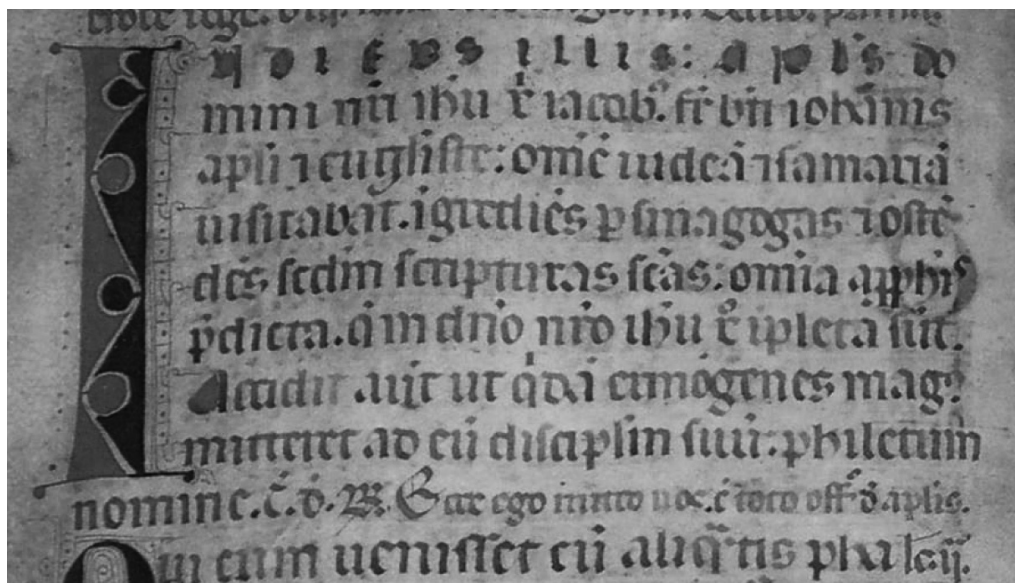 IN DIEBUS illis: apl's do
mini nr̄i ih̄u xp̄i iacob'. fr̄ bt̄i ioh̄annis
apl̄i ⁊ euḡliste: omē̄ iudeā ⁊ samariā
uisitabat. īgrediēs p̱ sinagogas ⁊ ostē
dēs secd̄m scripturas scās: om̄ia a p̱ph̄is
p̄dicta. q̄ in dn̄o nr̄o ih̄u xp̄o īpleta sūt.
Accidit aut̄ ut qⁱdā ermogenes mag'.
mitteret ad eū discipl̄m suū. philetum
nomine. R̄. Ecce ego mitto uos. ī toto off̄. d̄ apl̄is.
Qui cum uenisset cū aliqⁱtis